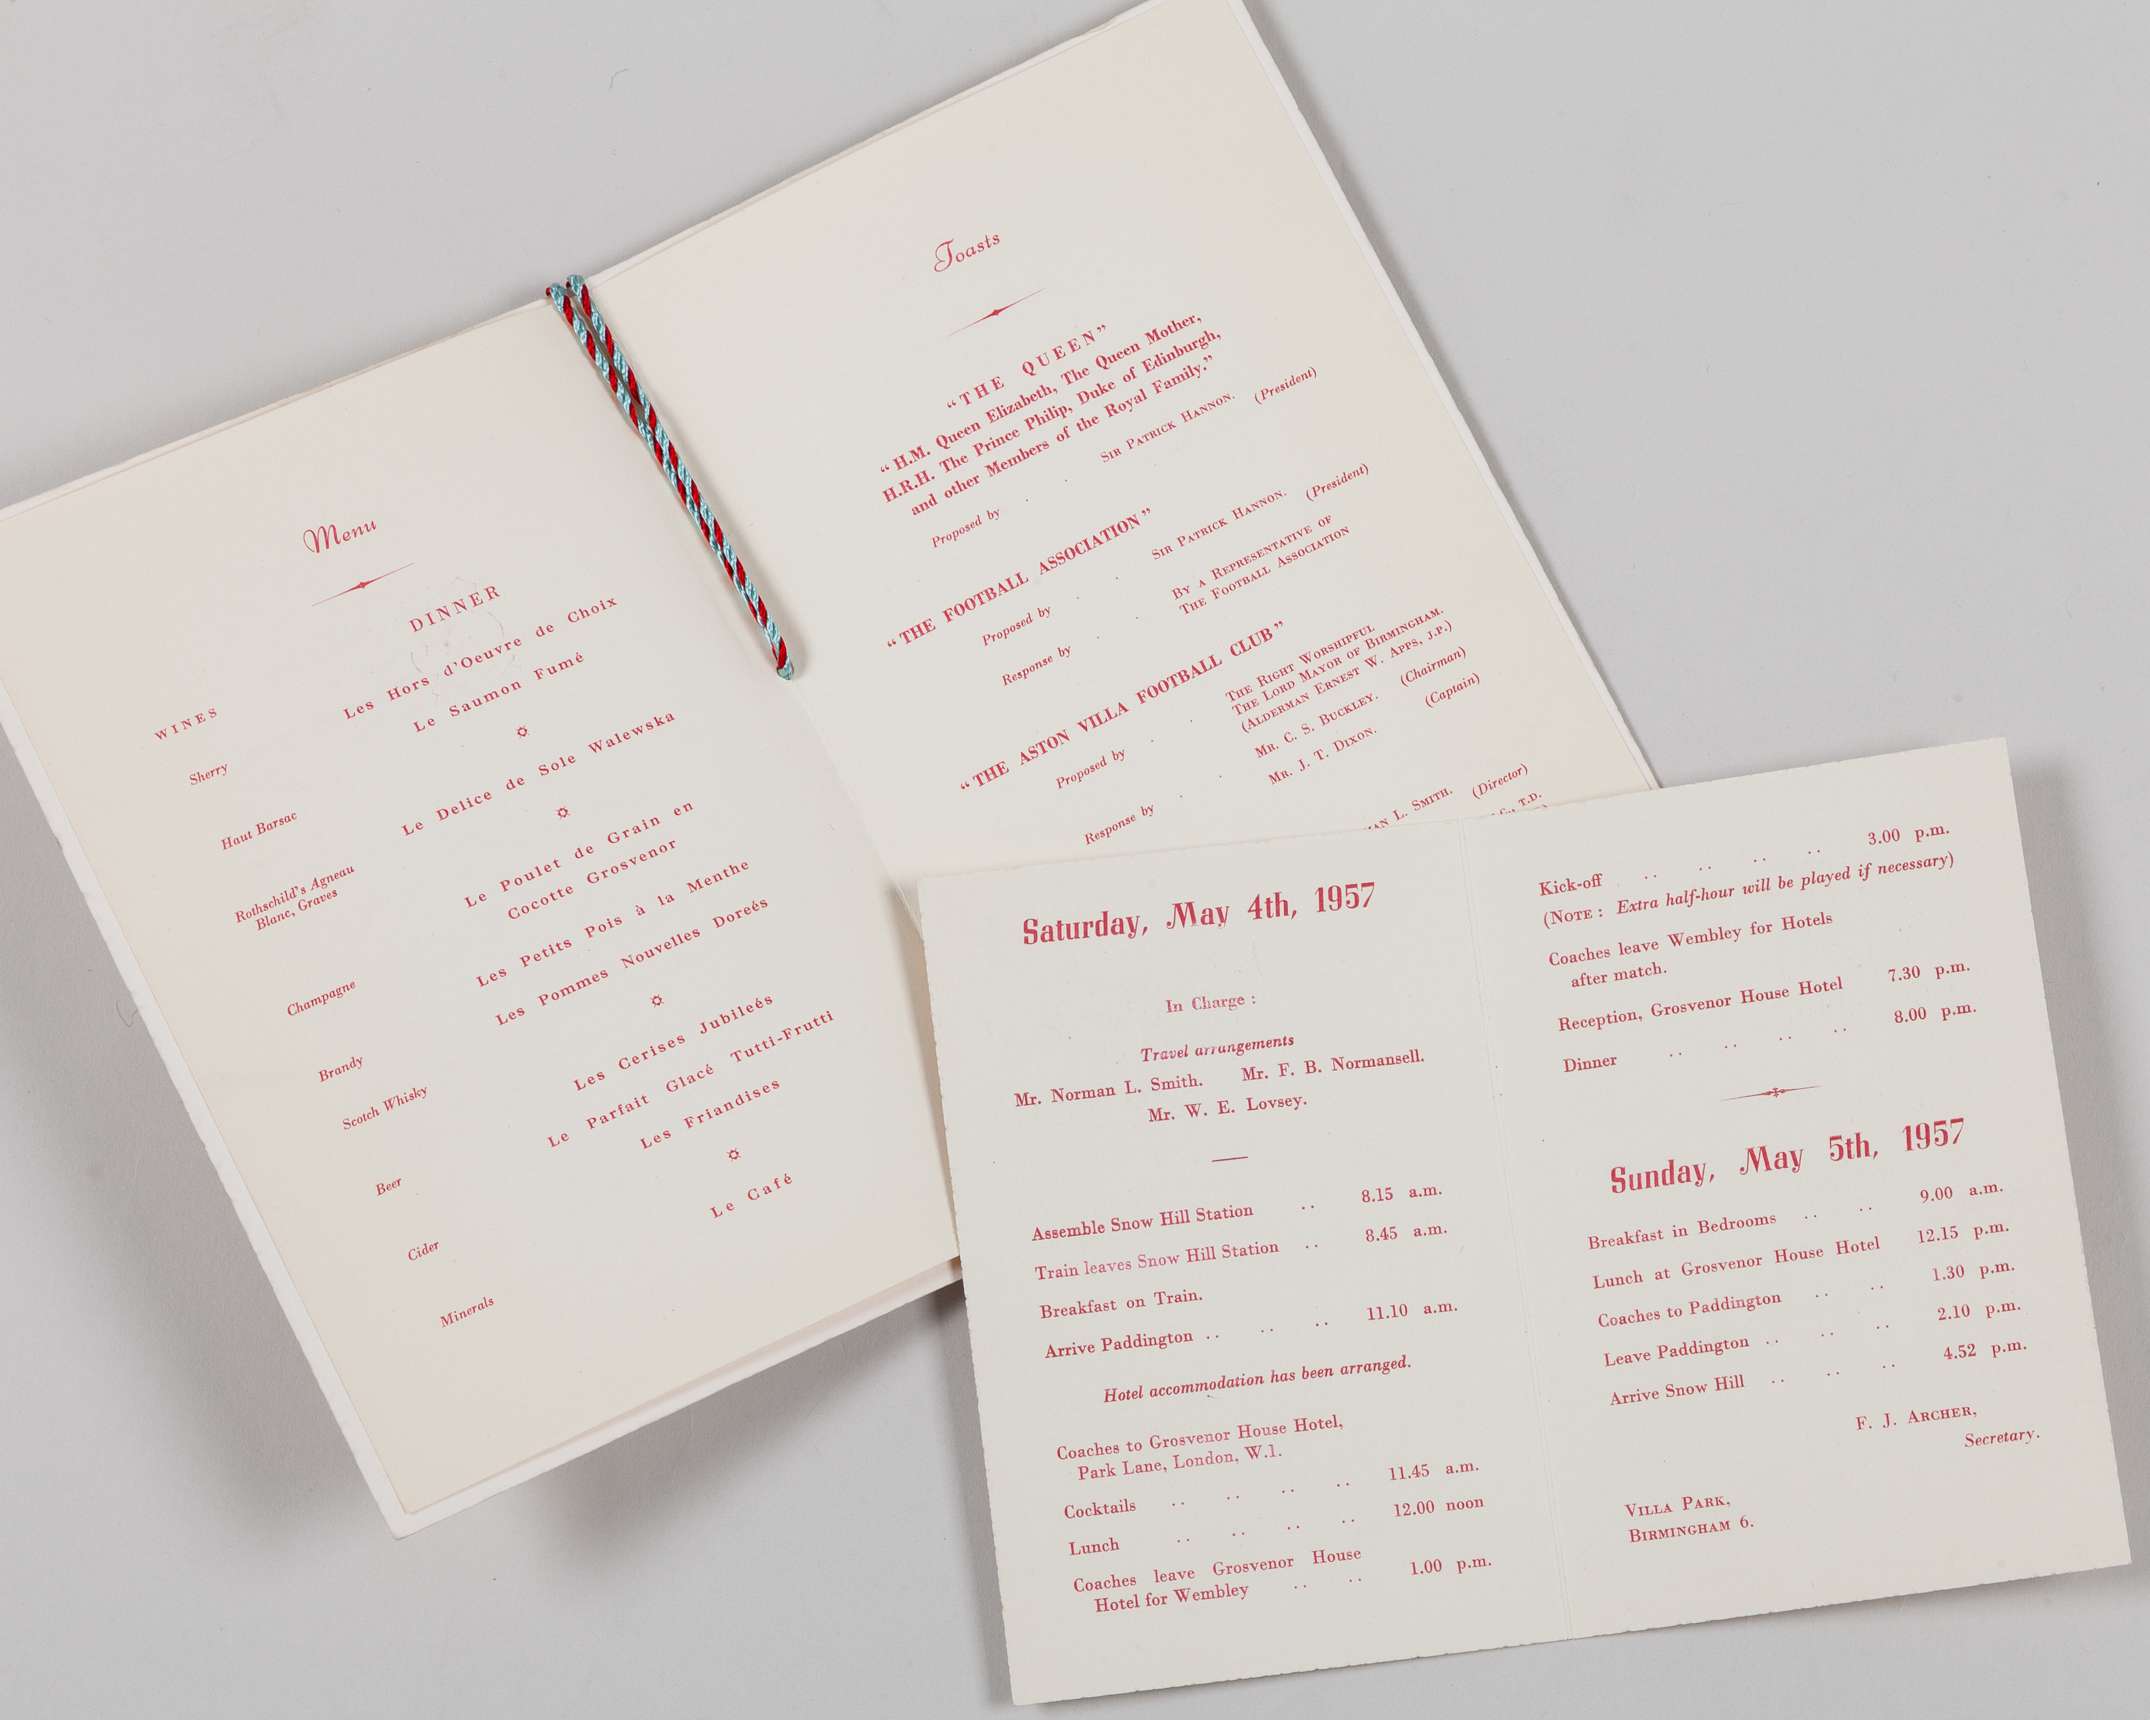 Menu
DINNER
WINES
Les Hors d'Oeuvre de Choix
Le Saumon Fumé
Sherry
Haut Barsac
Le Delice de Sole Walewska
Rothschild's Agneau
Blanc, Graves
Le Poulet de Grain en
Cocotte Grosvenor
Les Petits Pois à la Menthe
Les Pommes Nouvelles Doreés
Champagne
Brandy
Les Cerises Jubileés
Le Parfait Glacé Tutti-Frutti
Les Friandises
Scotch Whisky
Beer
Le Café
Cider
Minerals
Toasts
“THE QUEEN”
“H.M. Queen Elizabeth, The Queen Mother,
H.R.H. The Prince Philip, Duke of Edinburgh,
and other Members of the Royal Family.”
Proposed by . . SIR PATRICK HANNON. (President)
“THE FOOTBALL ASSOCIATION”
Proposed by . . SIR PATRICK HANNON. (President)
Response by . . BY A REPRESENTATIVE OF
THE FOOTBALL ASSOCIATION
“THE ASTON VILLA FOOTBALL CLUB”
Proposed by . . THE RIGHT WORSHIPFUL
THE LORD MAYOR OF BIRMINGHAM.
(ALDERMAN ERNEST W. APPS, J.P.)
Response by . . MR. C. S. BUCKLEY. (Chairman)
MR. J. T. DIXON. (Captain)
L. SMITH. (Director)
T.D.
Saturday, May 4th, 1957
In Charge :
Travel arrangements
Mr. Norman L. Smith. Mr. F. B. Normansell.
Mr. W. E. Lovsey.
Assemble Snow Hill Station .. 8.15 a.m.
Train leaves Snow Hill Station .. 8.45 a.m.
Breakfast on Train.
Arrive Paddington .. .. .. 11.10 a.m.
Hotel accommodation has been arranged.
Coaches to Grosvenor House Hotel,
Park Lane, London, W.1.
Cocktails .. .. .. .. 11.45 a.m.
Lunch .. .. .. .. 12.00 noon
Coaches leave Grosvenor House
Hotel for Wembley .. .. 1.00 p.m.
Kick-off .. .. .. .. 3.00 p.m.
(NOTE : Extra half-hour will be played if necessary)
Coaches leave Wembley for Hotels
after match.
Reception, Grosvenor House Hotel 7.30 p.m.
Dinner .. .. .. .. 8.00 p.m.
Sunday, May 5th, 1957
Breakfast in Bedrooms .. .. 9.00 a.m.
Lunch at Grosvenor House Hotel 12.15 p.m.
Coaches to Paddington .. .. 1.30 p.m.
Leave Paddington .. .. .. 2.10 p.m.
Arrive Snow Hill .. .. .. 4.52 p.m.
F. J. ARCHER,
Secretary.
VILLA PARK,
BIRMINGHAM 6.